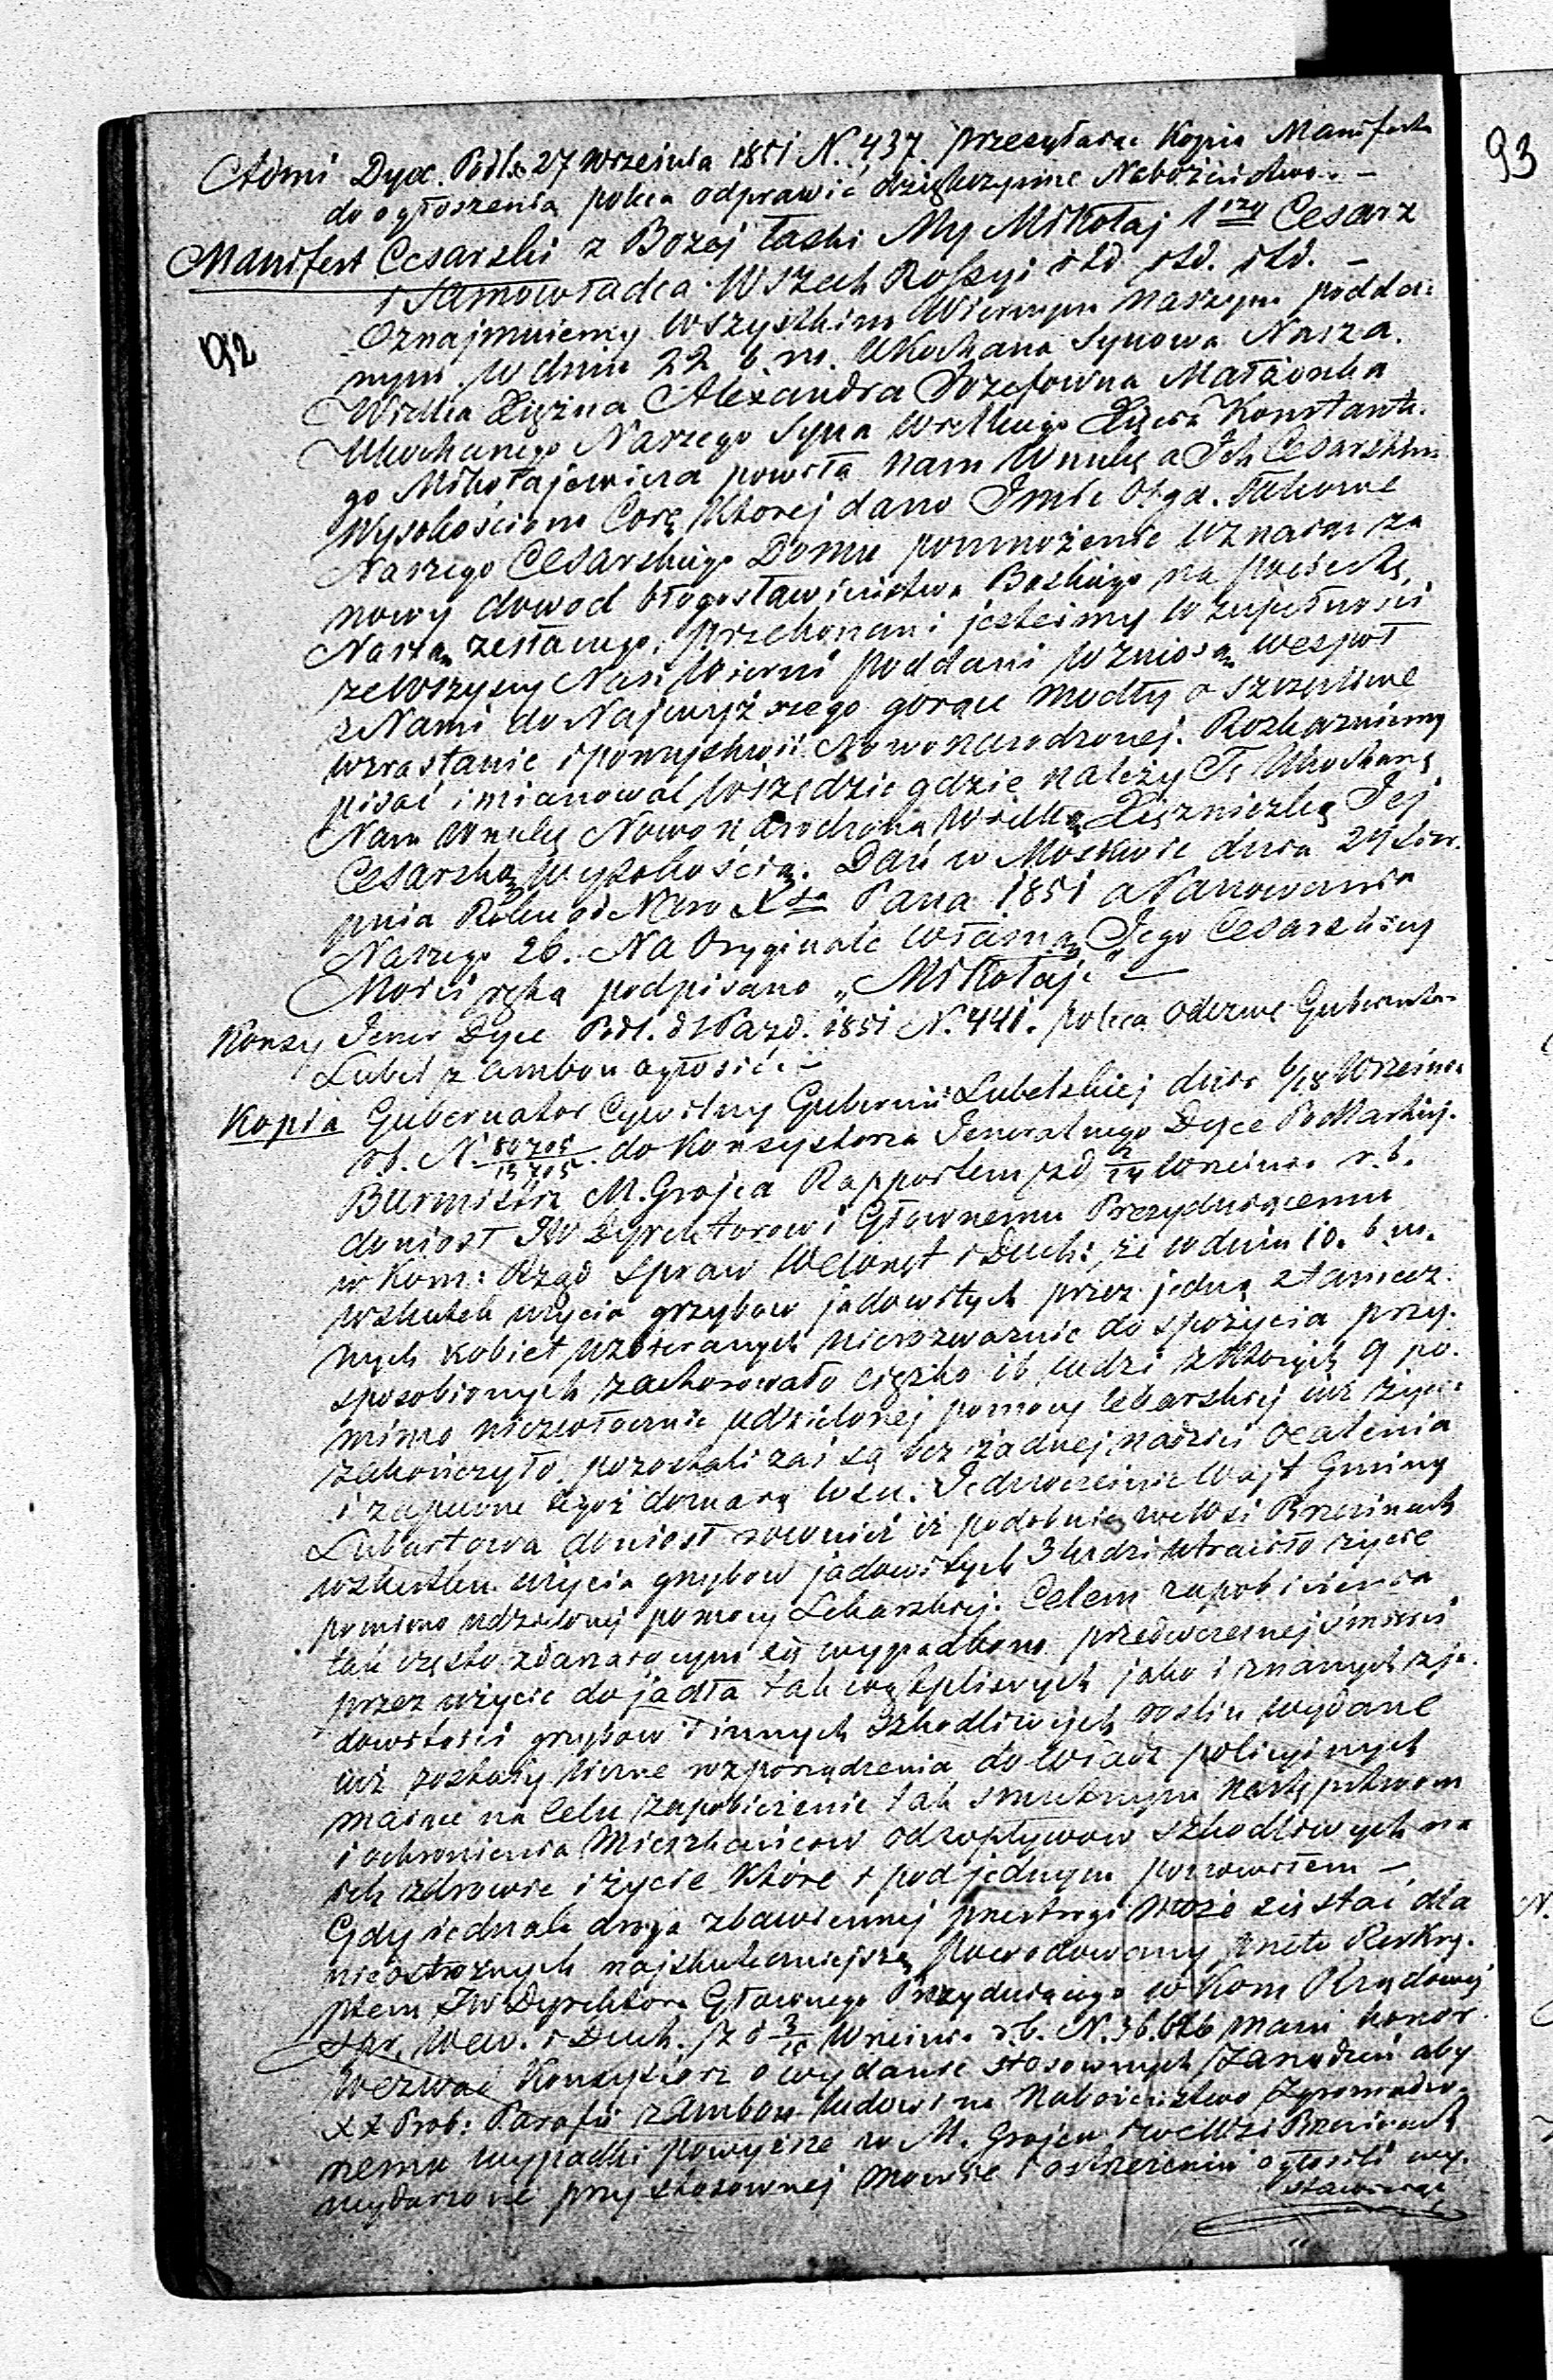 93
Admi Dyec. Podl. 27 Września 1851 N. 437. przesyłaiąc Kopią Manifestu
do ogłoszenia poleca odprawić dziękczynne Nabożeństwo. –
Manifest Cesarski z Bozej łaski My Mikołaj 1szy Cesarz
i Samowładca Wszech Rossyi itd. itd. itd. –
92
Oznajmuiemy wszystkim Wiernym naszym podda:
nym. W dniu 22 b. m. Ukochana Synowa Nasza.
Wielka Xiężna Alexandra Jozefowna Małżonka
Ukochanego Naszego Syna Wielkiego Xięcia Konstante.
go Mikołajewicza powiła nam Wnukę a Ich Cesarskim
Wysokościom Corę Ktorej dano Imie Olga. Takowe
Naszego Cesarskiego Domu pomnożenie uznaiąc za
nowy dowod błogosławieństwa Boskiego na pociechę
Naszą zesłanego, przekonani jesteśmy w zupełności
ze wszyscy Nasi Wierni poddani wzniosą wespoł
z Nami do Najwyższego gorące modły o szczęśliwe
wzrastanie i pomyślność Nowonarodzonej. Rozkazuiemy
pisać i mianować wszędzie gdzie należy Tę Ukochaną
Nam Wnukę Nowo narodzoną Wielką Xiężniczką Jej
Cesarską Wysokością. Dań w Moskwie dnia 24 Sier.
pnia Roku od Naro Xsa Pana 1851 a Panowania
Naszego 26. Na Oryginale własną Jego Cesarskiey
Mości ręką podpisano „Mikołaj" –
Konsy Jener Dyec Podl. d 1 Pazd. 1851 N. 441. poleca Odezwę Gubernatora
Lubel z ambon ogłosić. –
Kopia Gubernator Cywilny Gubernii Lubelskiej dnia 6/18 Września
rb. N. 80705/15705. do Konsystorza Jeneralnego Dyec Podlaskiej.
Burmistrz M. Grojca Rapportem z d 2/14 Września r. b.
doniosł JW Dyrektorowi Głównemu Prezyduiącemu
w Kom: Rząd Spraw Wewnęt i Duch: że w dniu 10. b. m.
wskutek uzycia grzybow jadowitych przez jedną z tamecz.
nych kobiet uzbieranych nierozważnie do spożycia przy.
sposobionych zachorowało ciężko 16 ludzi z ktorych 9 po.
mimo niezwłocznie udzielonej pomocy lekarskiej iuż życie
zakończyło. pozostali zaś są bez żadnej nadziei ocalenia
i zapewne tegoż doznają losu. Jednocześnie Wojt Gminy
Lubartowa doniosł rownież iż podobnie we Wsi Brzezinach
wskutku uzycia grzybow jadowitych 3 ludzi utraciło życie
pomimo udzielonej pomocy Lekarskiej. Celem zapobieżenia
tak często zdarzaiącym się wypadkom przedwczesnej śmierci
przez użycie do jadła tak wątpliwych jako i znanych z ja.
dowitości grzybow i innych szkodliwych roslin wydane
iuż zostały liczne rozporządzenia do Władz policyjnych
maiące na Celu zapobieżenie tak smutnym następstwom
i ochronienia Mieszkańcow od wpływow szkodliwych na
ich zdrowie i życie Które i pod jednym ponowiłem –
Gdy iednak droga zbawiennej przestrogi może się stać dla
nieostrożnych najskuteczniejszą powodowany przeto Reskry.
ptem JW Dyrektora Głownego Prezyduiącego w Kom Rządowej
Spr. Wew. i Duch. z d 3/15 Września r.b. N. 36.626 mam honor
Wezwać Konsystorz o wydanie stosownych zarządzeń aby
XX Prob: Parafii z Ambon ludowi na Nabożeństwo zgromadzo.
nemu wypadki powyższe w M. Grojcu i we Wsi Brzezinach
wydarzone przy stosownej mowie i ostrzeżeniu ogłosili wy.
stawiaiąc